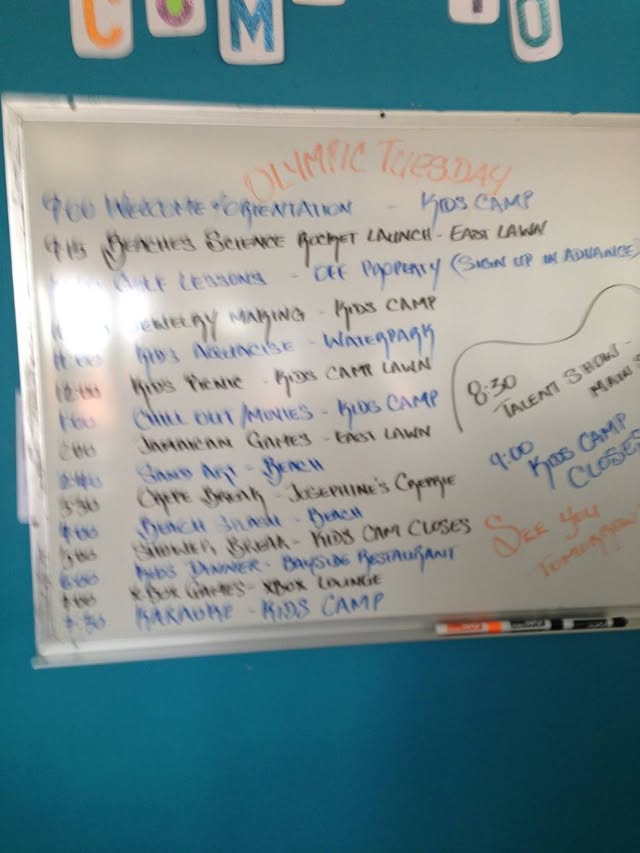 COM TO
OLYMPIC TUESDAY
9:00 WELCOME + ORIENTATION - KIDS CAMP
9:15 BEACHES SCIENCE ROCKET LAUNCH - EAST LAWN
GOLF LESSONS - OFF PROPERTY (SIGN UP IN ADVANCE)
JEWELRY MAKING - KIDS CAMP
11:00 KID'S AQUACISE - WATERPARK
12:00 KID'S PICNIC - KID'S CAMP LAWN
1:00 CHILL OUT/MOVIES - KIDS CAMP
2:00 JAMAICAN GAMES - EAST LAWN
SAND ART - BEACH
3:30 CREPE BREAK - JOSEPHINE'S CREPERIE
4:00 BEACH SPLASH - BEACH
5:00 SHOWER BREAK - KIDS CAM CLOSES
6:00 KIDS DINNER - BAYSIDE RESTAURANT
XBOX GAMES - XBOX LOUNGE
7:30 KARAOKE - KIDS CAMP
8:30
TALENT SHOW -
MAIN S
9:00
KIDS CAMP
CLOSES
SEE YOU
TOMORROW